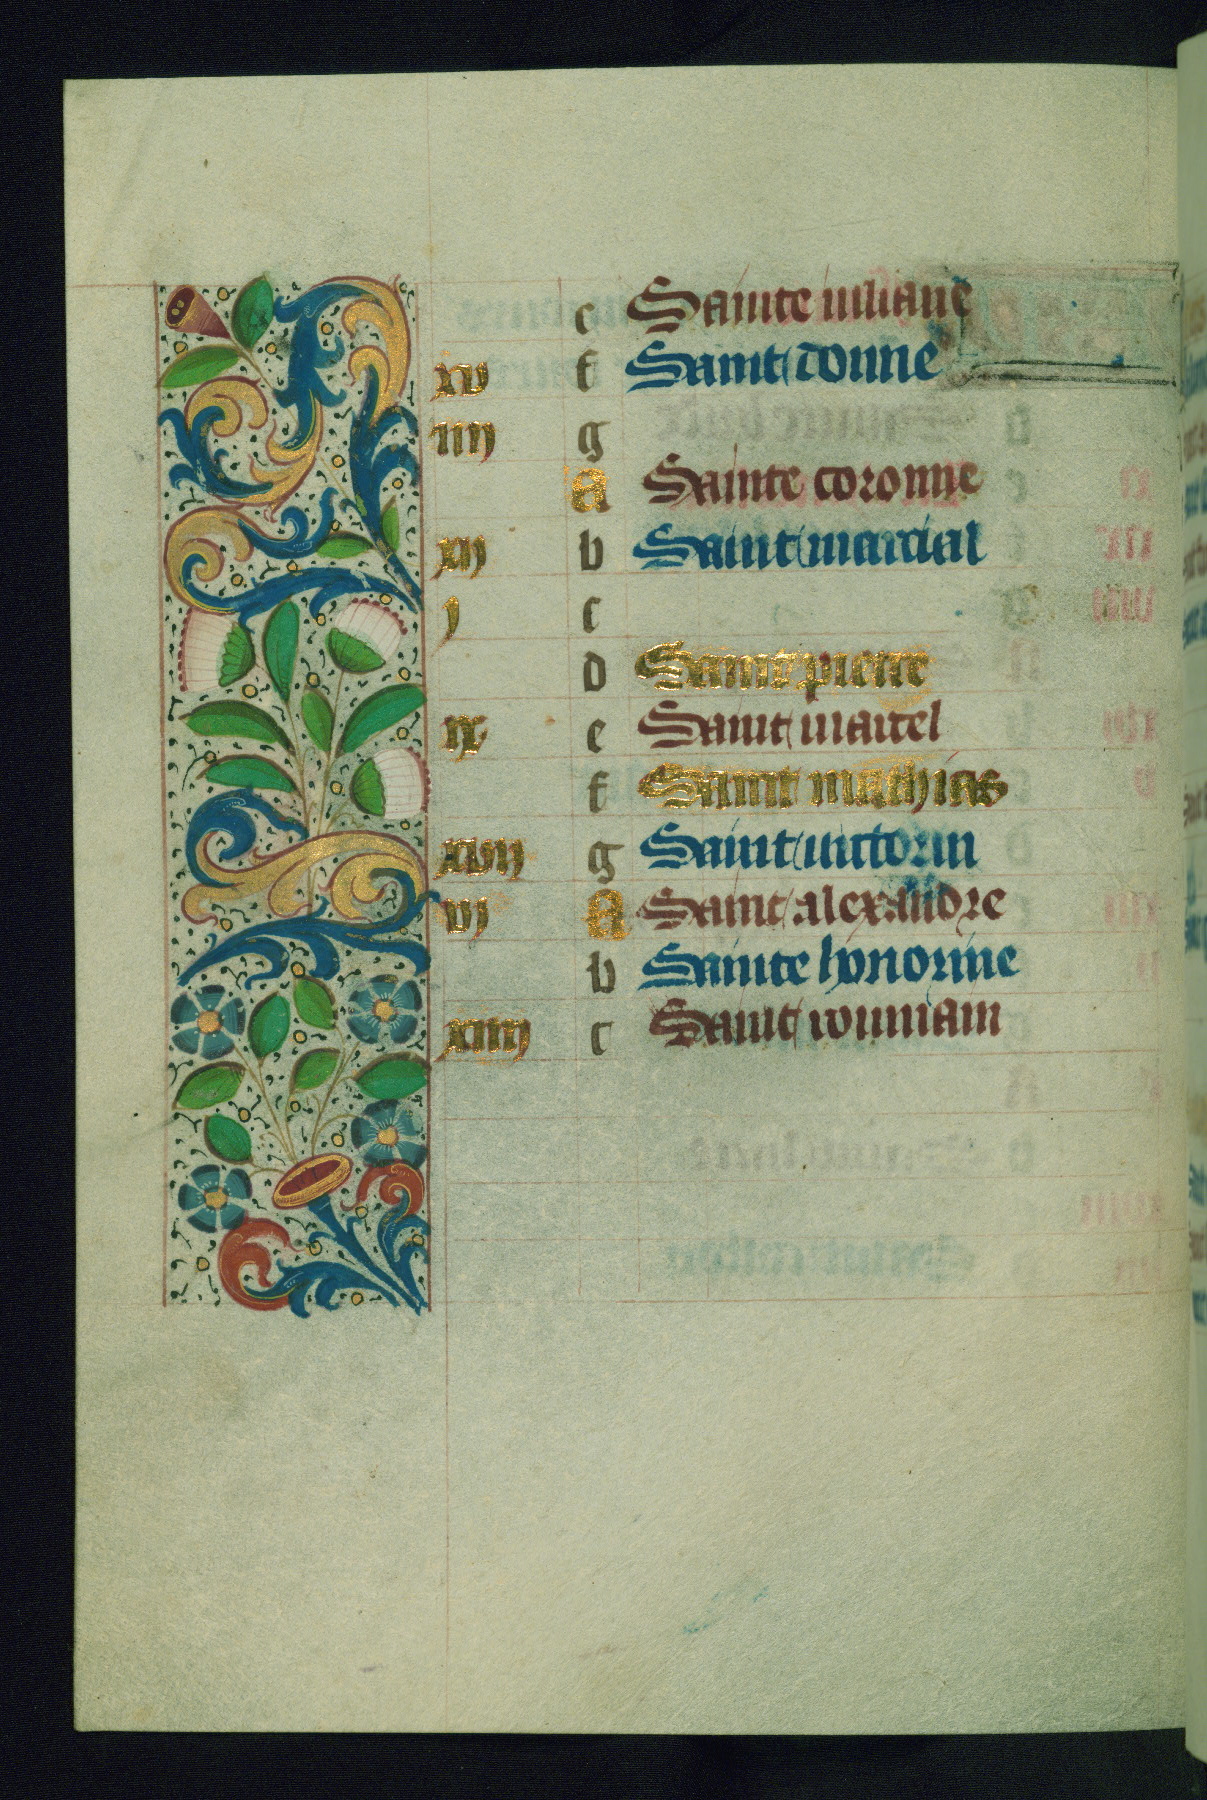 e Sainte iuliane
xv f Saint donne
iiij g
A Sainte coronne
xij b Saint marcial
j c
d Saint pierre
ix e Saint marcel
f Saint mathias
xvij g Saint victorin
vj A Saint alexandre
b Sainte honorine
xiiij c Saint